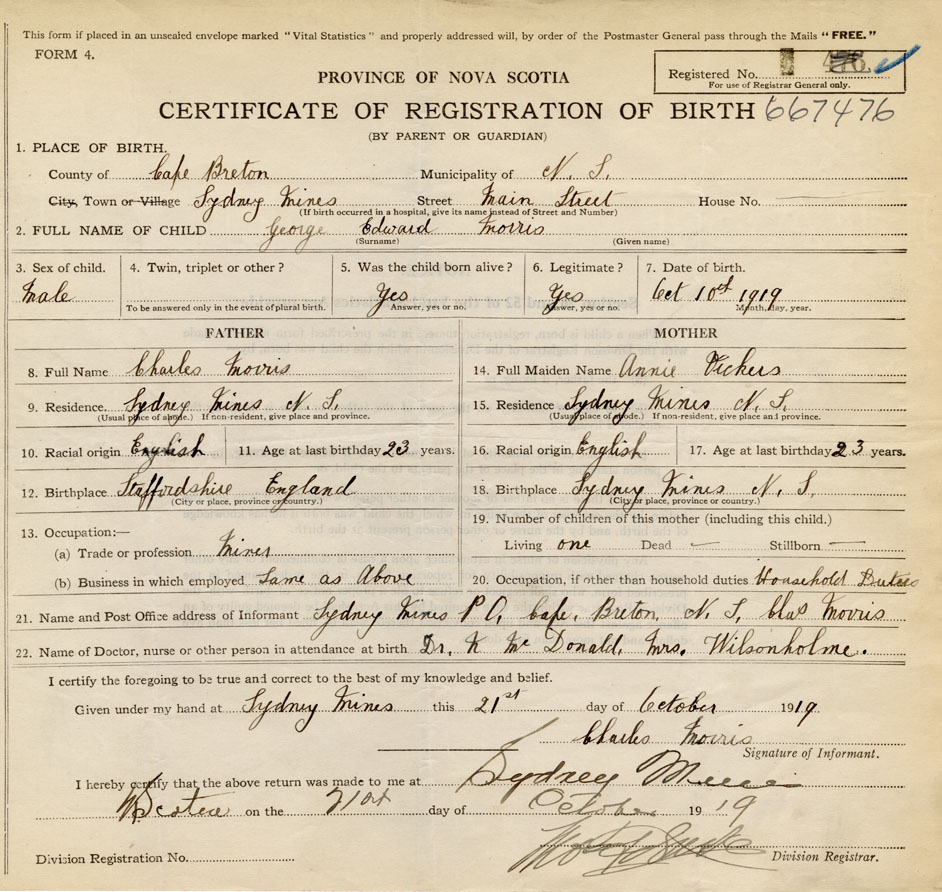 This form if placed in an unsealed envelope marked "Vital Statistics" and properly addressed will, by order of the Postmaster General pass through the Mails "FREE."
FORM 4.
PROVINCE OF NOVA SCOTIA
Registered No. 476
For use of Registrar General only.
CERTIFICATE OF REGISTRATION OF BIRTH 667476
(BY PARENT OR GUARDIAN)
1. PLACE OF BIRTH.
County of Cape Breton Municipality of N. S.
City, Town or Village Sydney Mines Street Main Street House No.
(If birth occurred in a hospital, give its name instead of Street and Number)
2. FULL NAME OF CHILD George Edward Morris
(Surname) (Given name)
3. Sex of child. 4. Twin, triplet or other? 5. Was the child born alive? 6. Legitimate? 7. Date of birth.
Male Yes Yes Oct 10st 1919
To be answered only in the event of plural birth. Answer, yes or no. Answer, yes or no. Month, day, year.
FATHER MOTHER
8. Full Name Charles Morris 14. Full Maiden Name Annie Vickers
9. Residence. Sydney Mines N. S. 15. Residence Sydney Mines N. S.
(Usual place of abode.) If non-resident, give place and province. (Usual place of abode.) If non-resident, give place and province.
10. Racial origin English 11. Age at last birthday 23 years. 16. Racial origin English 17. Age at last birthday 23 years.
12. Birthplace Staffordshire England 18. Birthplace Sydney Mines N. S.
(City or place, province or country.) (City or place, province or country.)
13. Occupation:— 19. Number of children of this mother (including this child.)
(a) Trade or profession. Miner Living one Dead — Stillborn —
(b) Business in which employed Same as Above 20. Occupation, if other than household duties Household Duties
21. Name and Post Office address of Informant Sydney Mines P O, Cape, Breton, N. S, Chas Morris
22. Name of Doctor, nurse or other person in attendance at birth Dr. K Mc Donald, Mrs. Wilsonholme.
I certify the foregoing to be true and correct to the best of my knowledge and belief.
Given under my hand at Sydney Mines this 21st day of October 1919
Charles Morris
Signature of Informant.
I hereby certify that the above return was made to me at Sydney Mines
N Scotia on the 21st day of October 1919
Division Registration No. Division Registrar.